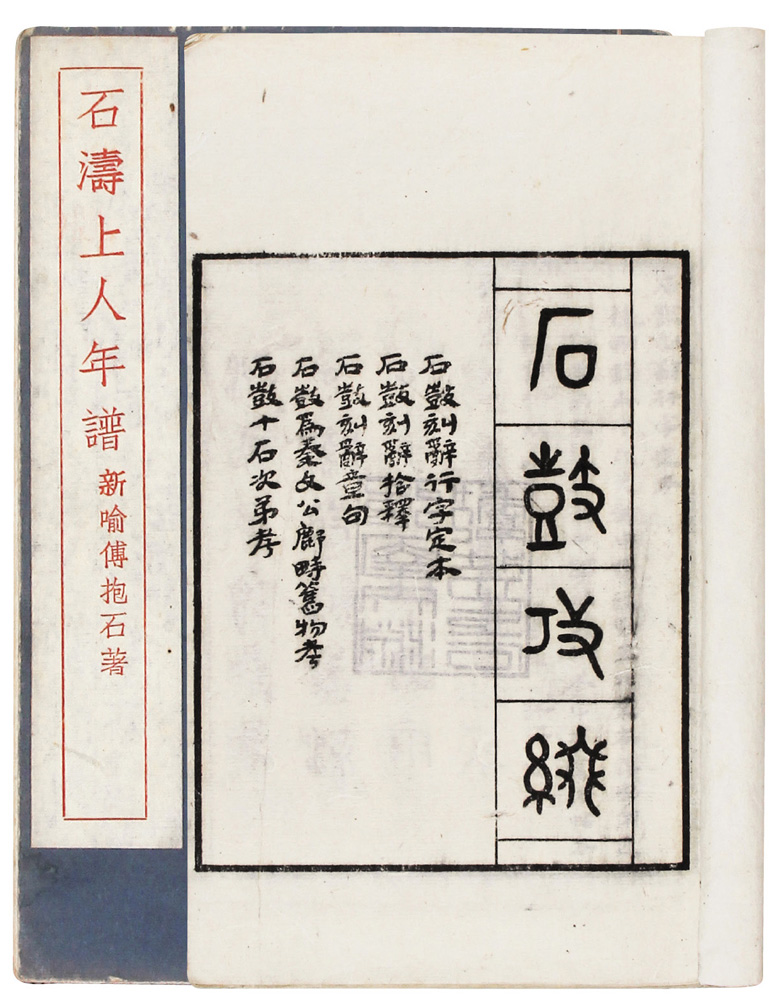 石濤上人年譜
新喻傅抱石著
石鼓攷綴
石鼓刻辭行字定本
石鼓刻辭拾釋
石鼓刻辭章句
石鼓爲秦文公鄜畤舊物考
石鼓十石次弟考